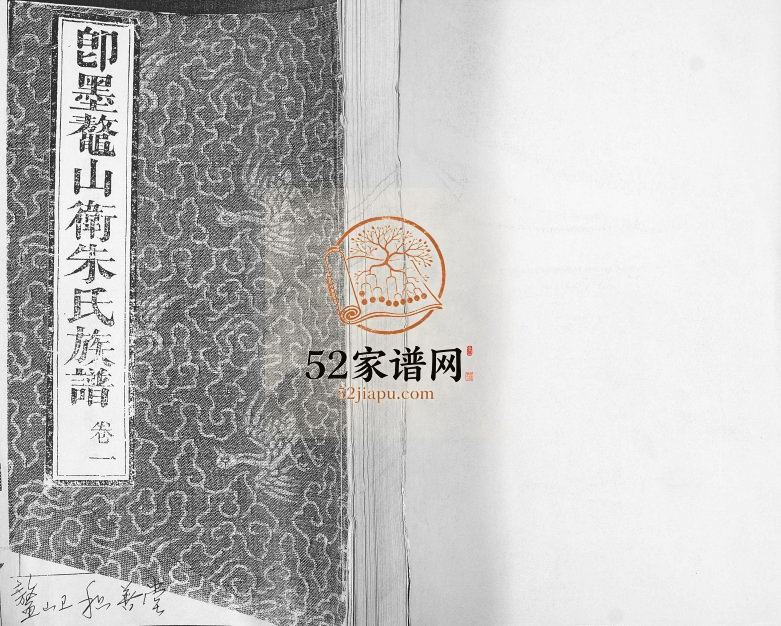 即墨鼇山衛朱氏族譜 卷一
52家谱网
52jiapu.com
鳌山卫 和善堂